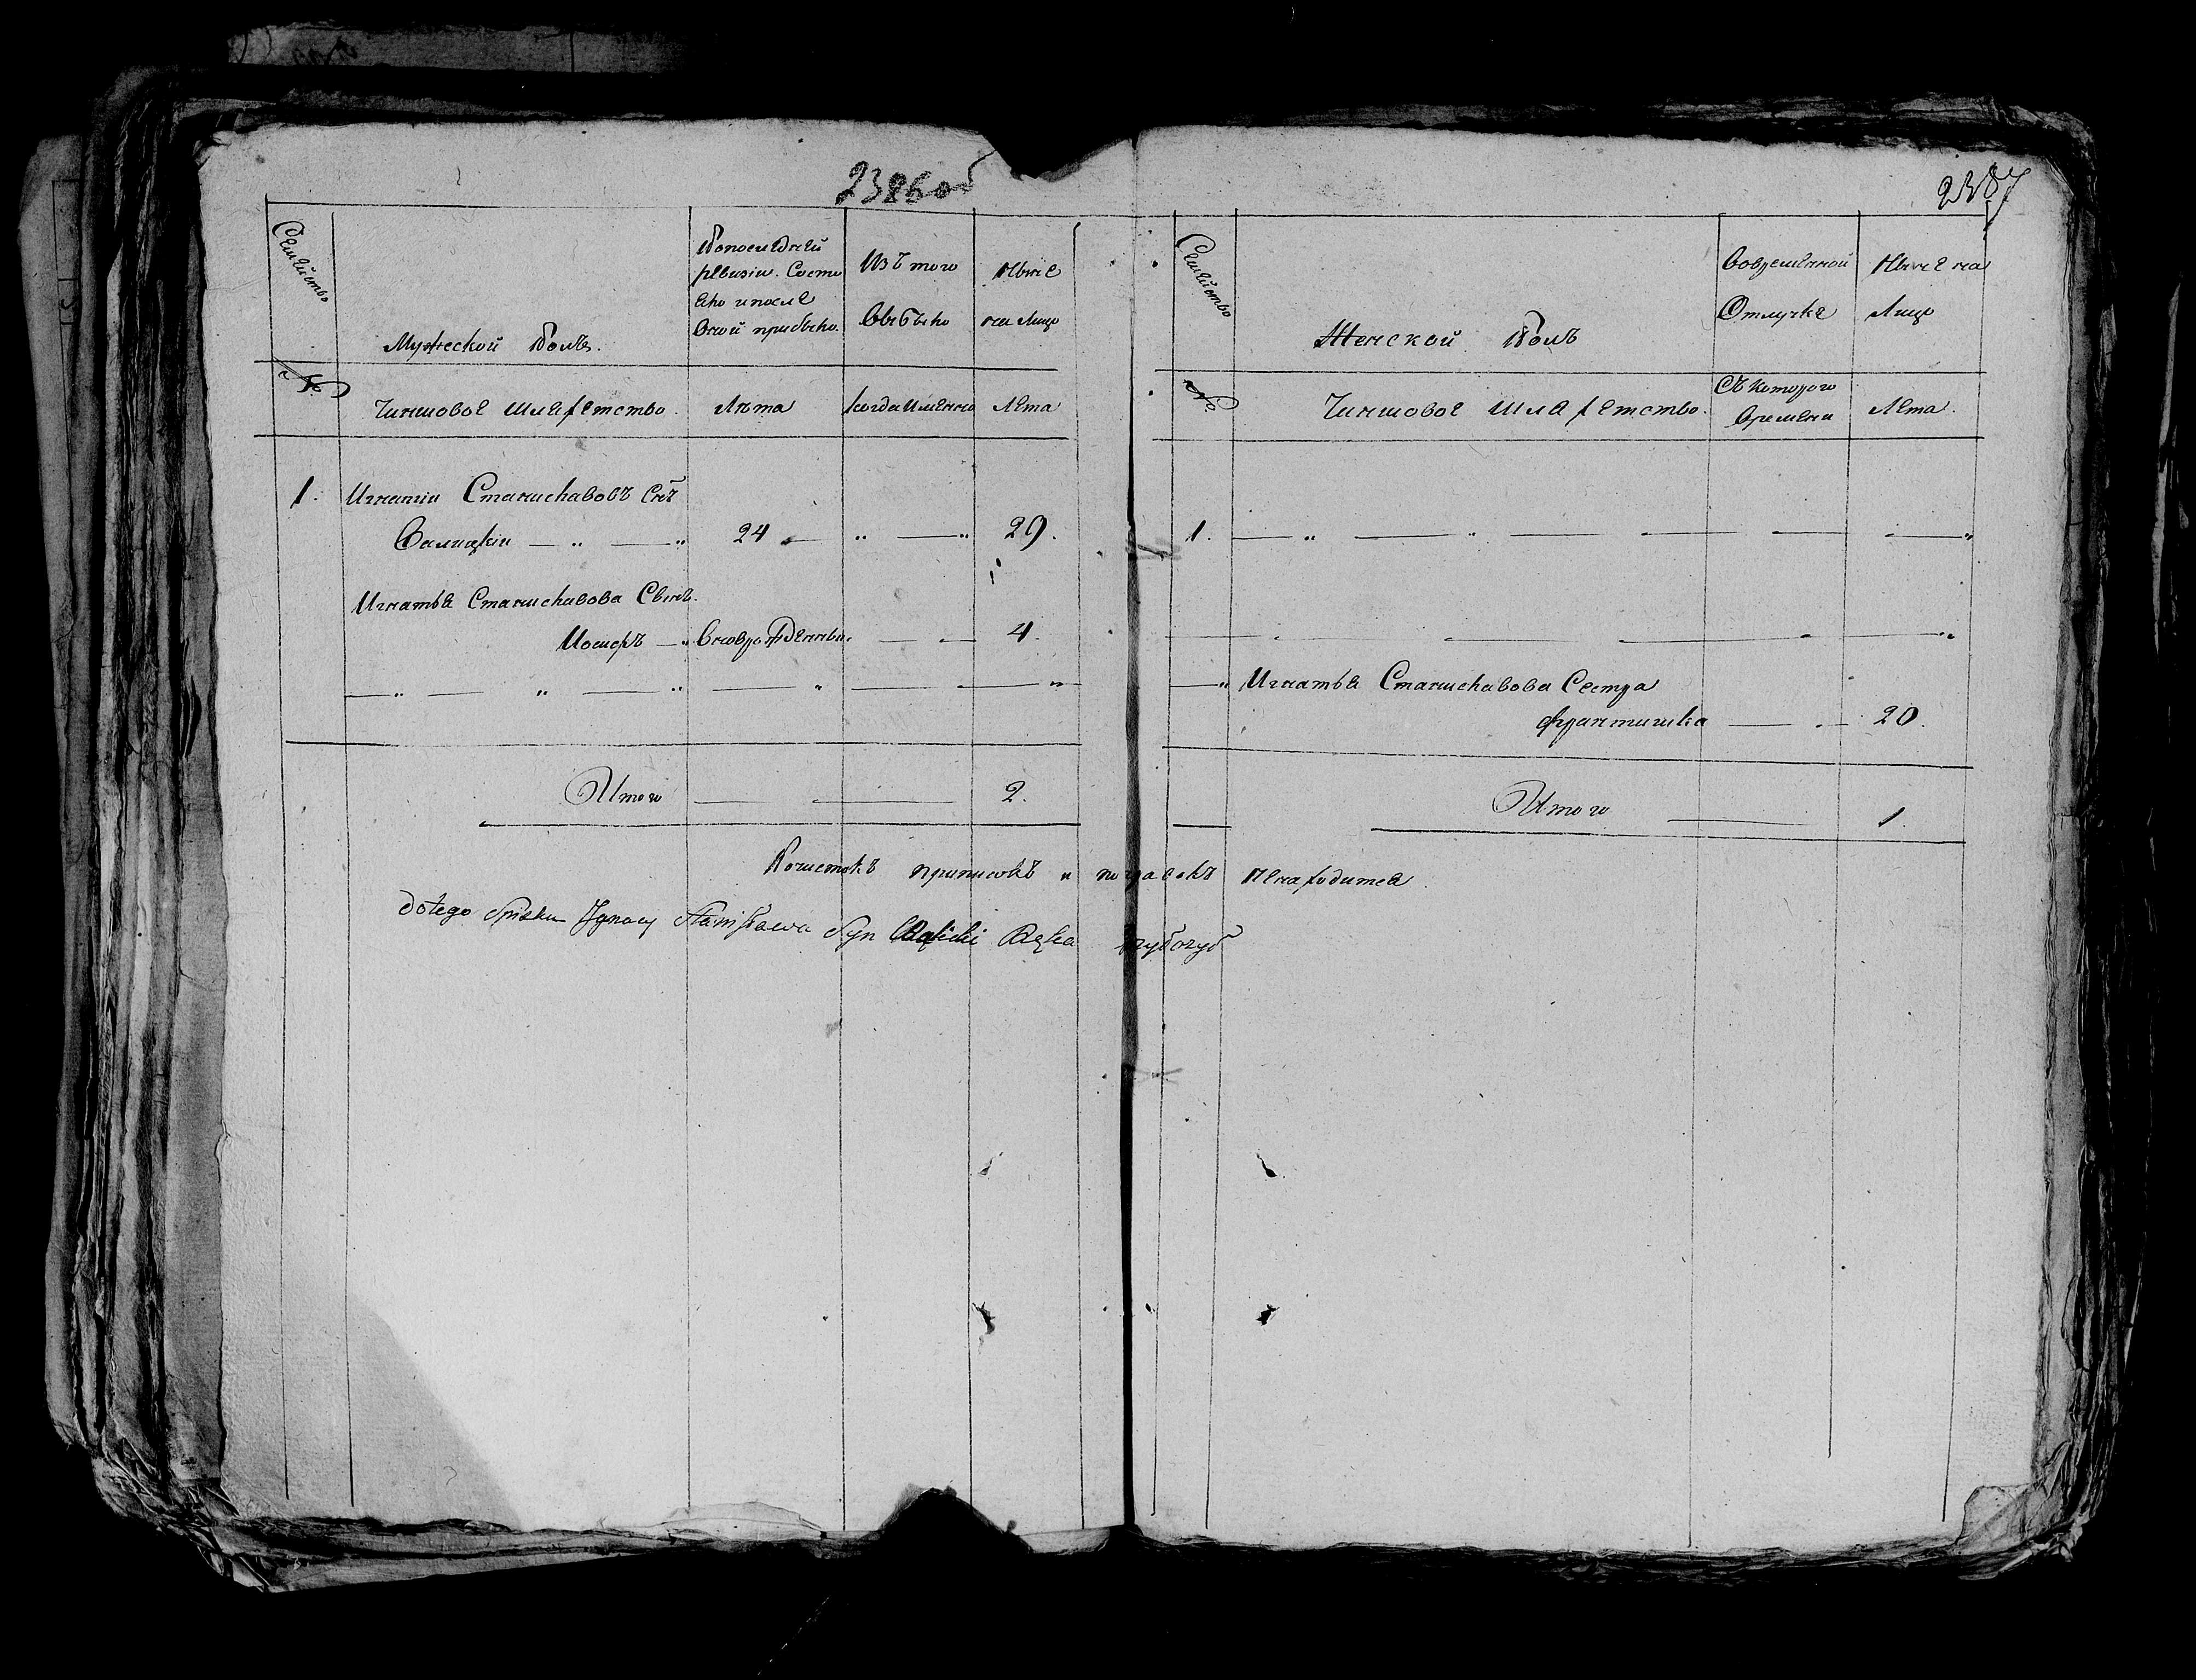 2386 об
Семейство
Мужеской Полъ.
Попоследней
ревизіи. Состо
яло ипосле
оной прибыло.
Изъ того
Выбыло
Ныне
на Лицо
№
Чиншовое Шляхетство.
Лѣта
когда Имянно
Лета
1. Игнатіи Станиславовъ Снъ
Валицкіи — „ — „ 24 — „ — „ 29.
Игнатья Станиславова Сынъ.
Иосифъ — „ Вновродженный. — — 4.
Итого — — 2.
2387
Семейство
Женской Полъ
Вовременной
Отлучке
Ныне на
Лицо
№
Чиншовое Шляхетство.
Съ котораго
Времени
Лета.
1. — „ — „ — — — — „
„ Игнатья Станиславова Сестра
Франтишка — . — 20.
Итого — 1.
Почистокъ приписокъ и поправокъ Ненаходится.
do tego Spisku Ignacy Stanisława Syn Ręka